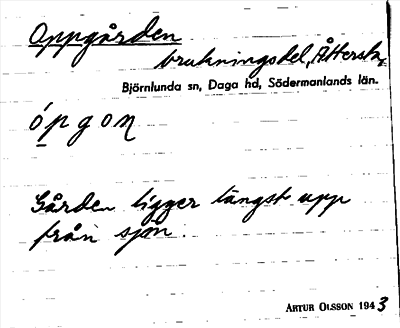 Oppgården
brukningsdel, Åttersta,
Björnlunda sn, Daga hd, Södermanlands län.
ópgoɳ
Gården ligger längst upp
från sjön.
ARTUR OLSSON 1943